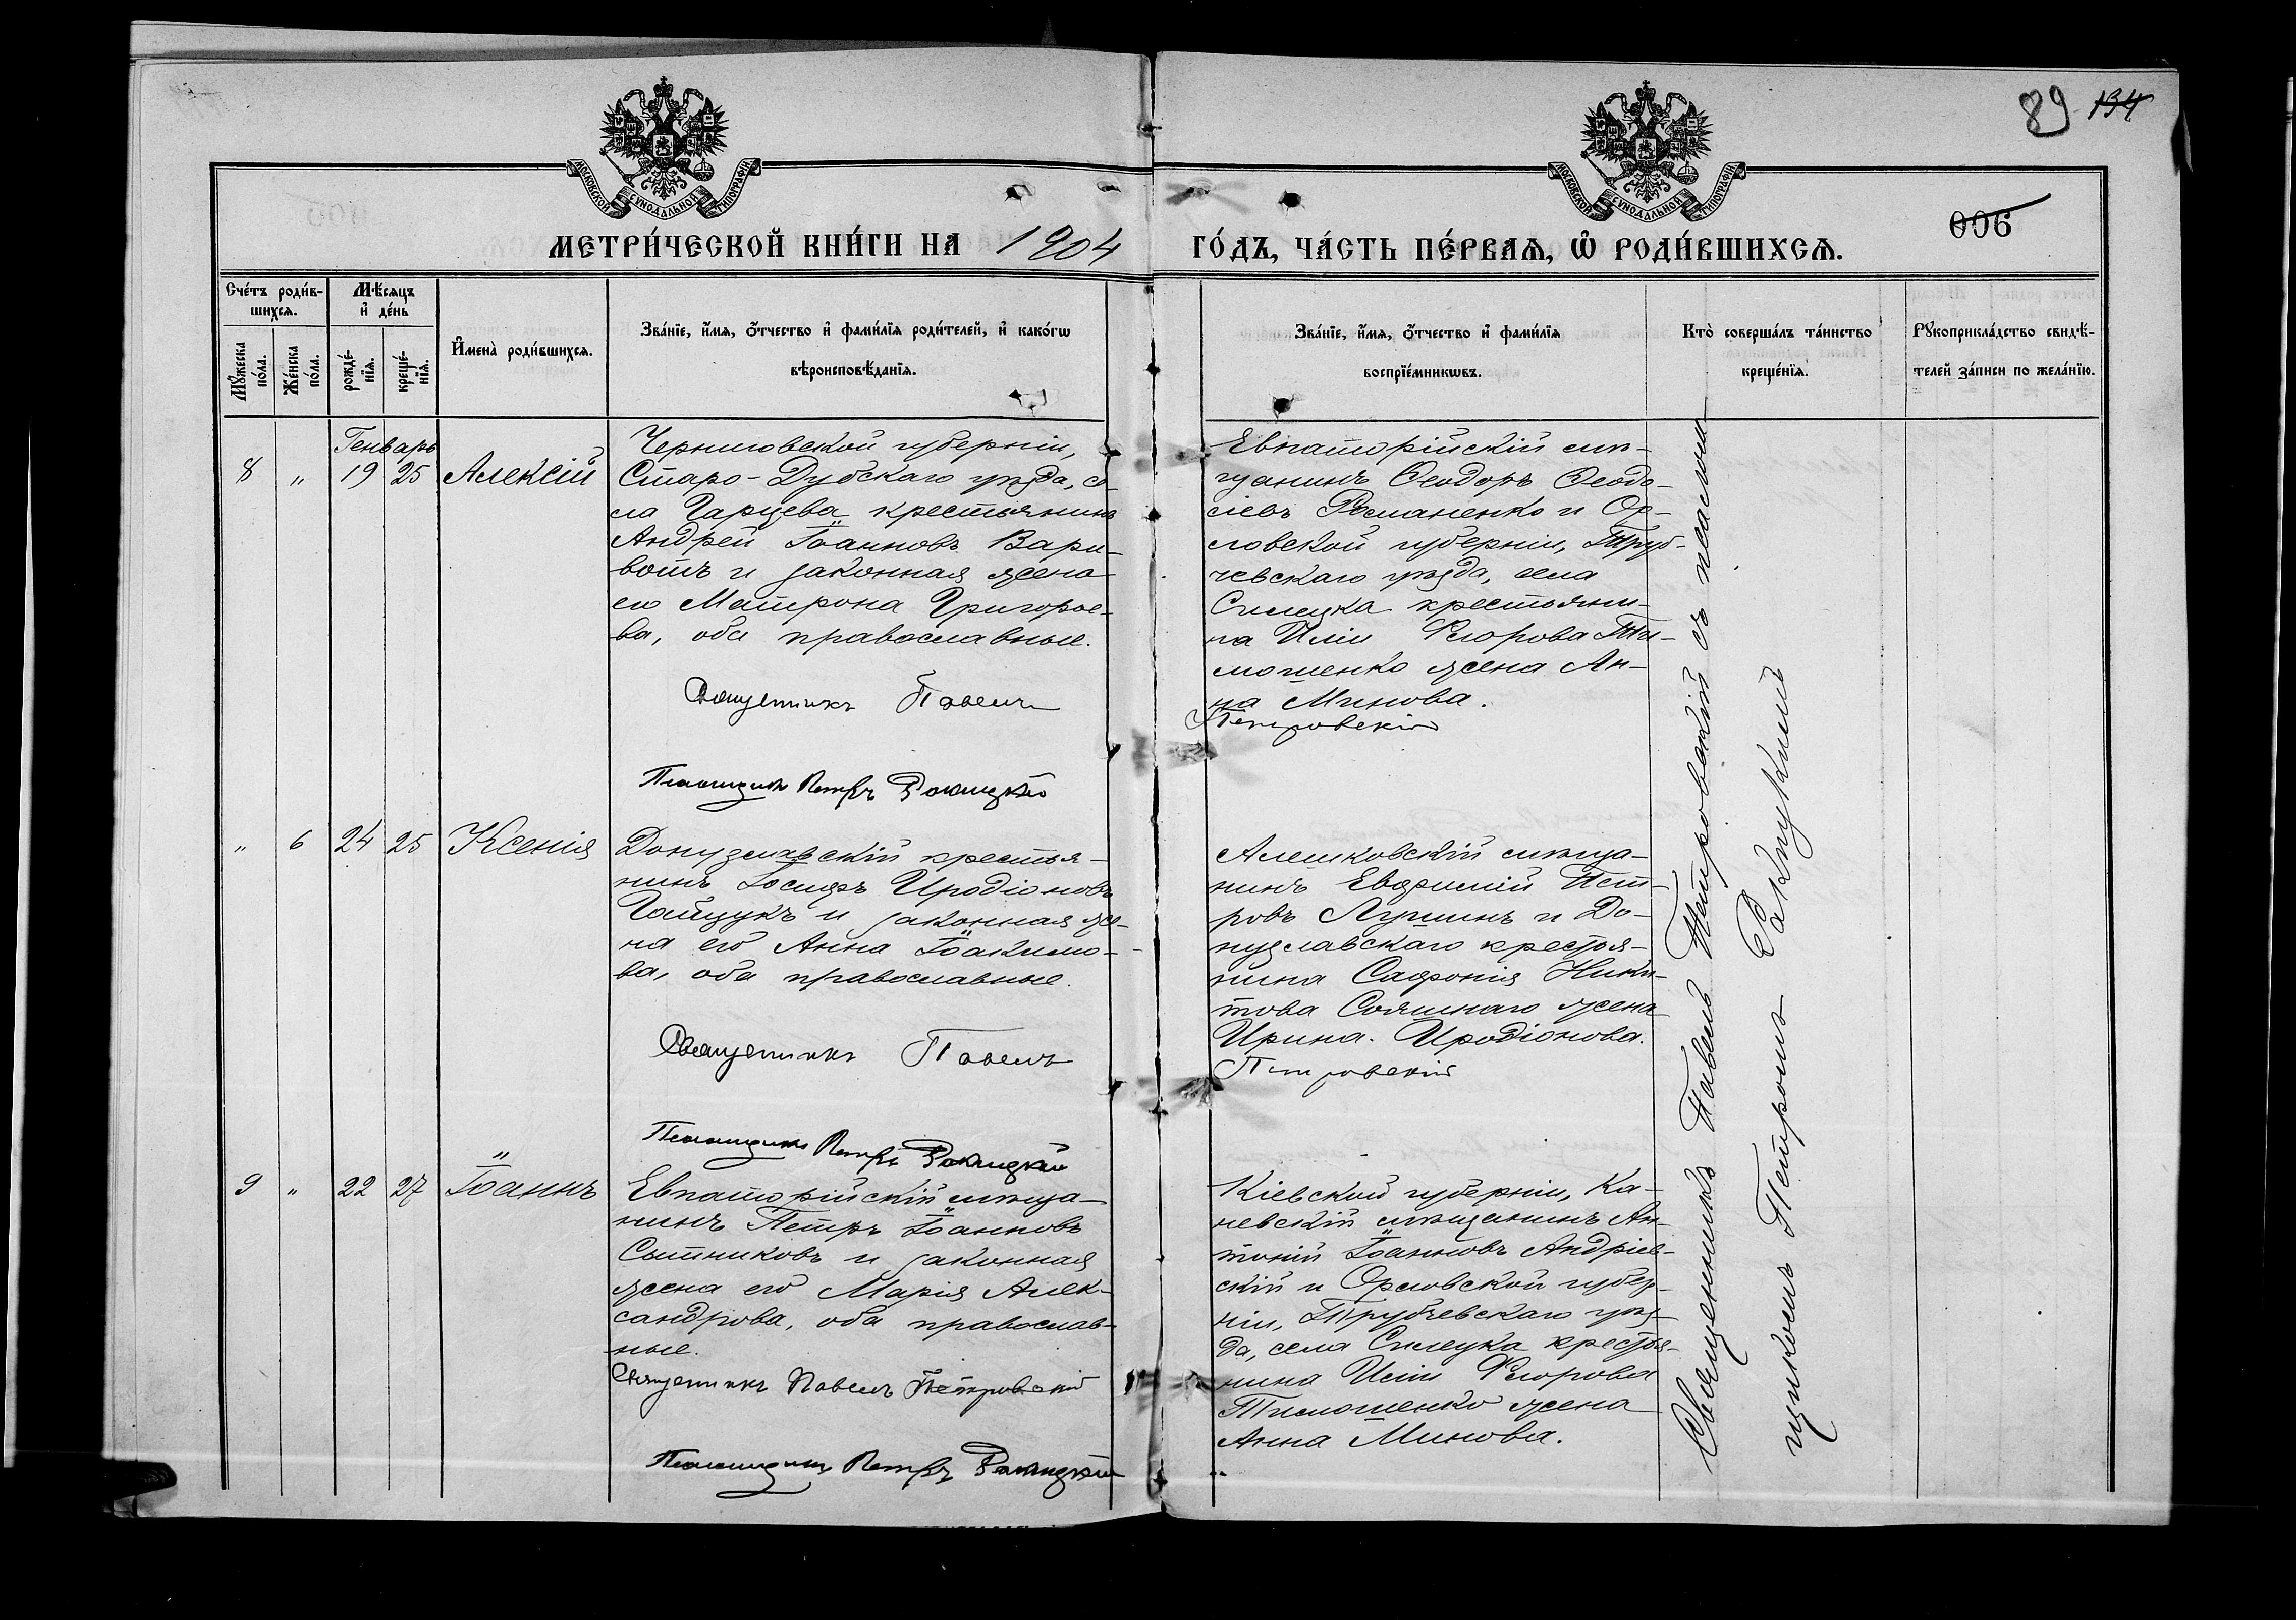 89 134
МОСКОВСКОЙ СУНОДАЛЬНОЙ ТИПОГРАФІИ
МОСКОВСКОЙ СУНОДАЛЬНОЙ ТИПОГРАФІИ
006
МЕТРИ́ЧЕСКОЙ КНИ́ГИ НА 1904
ГО́ДЪ, ЧА́СТЬ ПЕ́РВАѦ, Ѡ҆ РОДИ́ВШИХСѦ.
Сче́тъ роди́в-
шихсѧ.
Мѣ́сяцъ
и҆ де́нь
Мꙋ́жеска
по́ла.
Же́нска
по́ла.
рожде́-
нїѧ.
креще́-
нїѧ.
И҆мена̀ роди́вшихсѧ.
Зва́нїе, и҆́мѧ, ѻ҆́тчество и҆ фами́лїѧ роди́телей, и҆ како́гѡ
вѣроисповѣ́данїѧ.
Зва́нїе, и҆́мѧ, ѻ҆́тчество и҆ фами́лїѧ
воспрїе́мникѡвъ.
Кто̀ соверша́лъ та́инство
креще́нїѧ.
Рꙋкоприкла́дство свидѣ́-
телей за́писи по жела́нїю.
Генварь
8 „ 19 25 Алексій
Черниговской губерніи,
Старо-Дубскаго уѣзда, се-
ла Гарцева крестьянинъ
Андрей Іоанновъ Вари-
вотъ и законная жена
его Матрона Григорье-
ва, оба православные.
Священникъ Павелъ
Псаломщикъ Петръ Ракицкій
Евпаторійскій мѣ-
щанинъ Ѳеодоръ Ѳеодо-
сіевъ Романенко и Ор-
ловской губерніи, Труб-
чевскаго уѣзда, села
крестьяни-
на Иліи Егорова Ти-
мошенко жена Ан-
на Минова.
Петровскій
„ 6 24 25 Ксенія
Донузлавскій крестья-
нинъ Іосифъ Иродіоновъ
Гайдукъ и законная же-
на его Анна Іоакимо-
ва, оба православные.
Священникъ Павелъ
Псаломщикъ Петръ Ракицкій
Алешковскій мѣща-
нинъ Евфимій Пет-
ровъ и До-
нузлавскаго крестья-
нина Сафронія Ники-
това жена
Ирина Иродіонова.
Петровскій
9 „ 22 27 Іоаннъ
Евпаторійскій мѣща-
нинъ Петръ Іоанновъ
Сытниковъ и законная
жена его Марія Алек-
сандрова, оба православ-
ные.
Священникъ Павелъ Петровскій
Псаломщикъ Петръ Ракицкій
Кіевской губерніи, Ка-
невскій мѣщанинъ Ан-
тоній Іоанновъ Андріев-
скій и Орловской губер-
ніи, Трубчевскаго уѣз-
да, села крестья-
нина Иліи Егорова
Тимошенко жена
Анна Минова.
Священникъ Павелъ Петровскій съ псалом-
щикомъ Петромъ Ракицкимъ